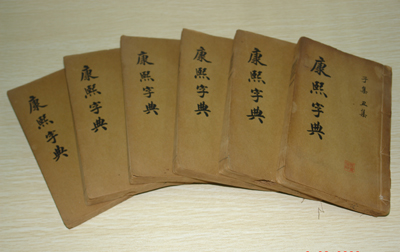 康熙字典
康熙字典
康熙字典
康熙字典
康熙字典
康熙字典
子集丑集